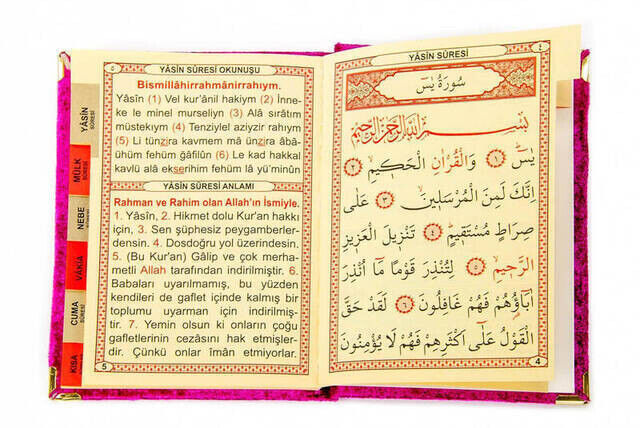 YÂSÎN SÛRESİ
سُورَةُ يٰسٓ
بِسْمِ اللّٰهِ الرَّحْمٰنِ الرَّحِيمِ
يٰسٓ ﴿١﴾ وَالْقُرْاٰنِ الْحَكِيمِ ﴿٢﴾
اِنَّكَ لَمِنَ الْمُرْسَلِينَ ﴿٣﴾ عَلٰى
صِرَاطٍ مُسْتَقِيمٍ ﴿٤﴾ تَنْزِيلَ الْعَزِيزِ
الرَّحِيمِ ﴿٥﴾ لِتُنْذِرَ قَوْمًا مَٓا اُنْذِرَ
اٰبَٓاؤُ۬هُمْ فَهُمْ غَافِلُونَ ﴿٦﴾ لَقَدْ حَقَّ
الْقَوْلُ عَلٰٓى اَكْثَرِهِمْ فَهُمْ لَا يُؤْمِنُونَ
4
YÂSÎN SÛRESİ OKUNUŞU
Bismillâhirrahmânirrahıym.
Yâsîn (1) Vel kur'ânil hakiym (2) İnne-
ke le minel murseliyn (3) Alâ sırâtım
müstekıym (4) Tenziylel aziyzir rahıym
(5) Li tünzira kavmem mâ ünzira âbâ-
ühüm fehüm ğâfilûn (6) Le kad hakkal
kavlü alâ ekserihim fehüm lâ yü'minûn
YÂSÎN SÛRESİ ANLAMI
Rahman ve Rahim olan Allah'ın İsmiyle.
1. Yâsîn, 2. Hikmet dolu Kur'an hakkı
için, 3. Sen şüphesiz peygamberler-
densin. 4. Dosdoğru yol üzerindesin.
5. (Bu Kur'an) Gâlip ve çok merha-
metli Allah tarafından indirilmiştir. 6.
Babaları uyarılmamış, bu yüzden
kendileri de gaflet içinde kalmış bir
toplumu uyarman için indirilmiş-
tir. 7. Yemin olsun ki onların çoğu
gafletlerinin cezasını hak etmişler-
dir. Çünkü onlar îman etmiyorlar.
5
YÂSİN
SÛRESİ
MÜLK
SÛRESİ
NEBE
SÛRESİ
VÂKIA
CUMA
SÛRESİ
KISA